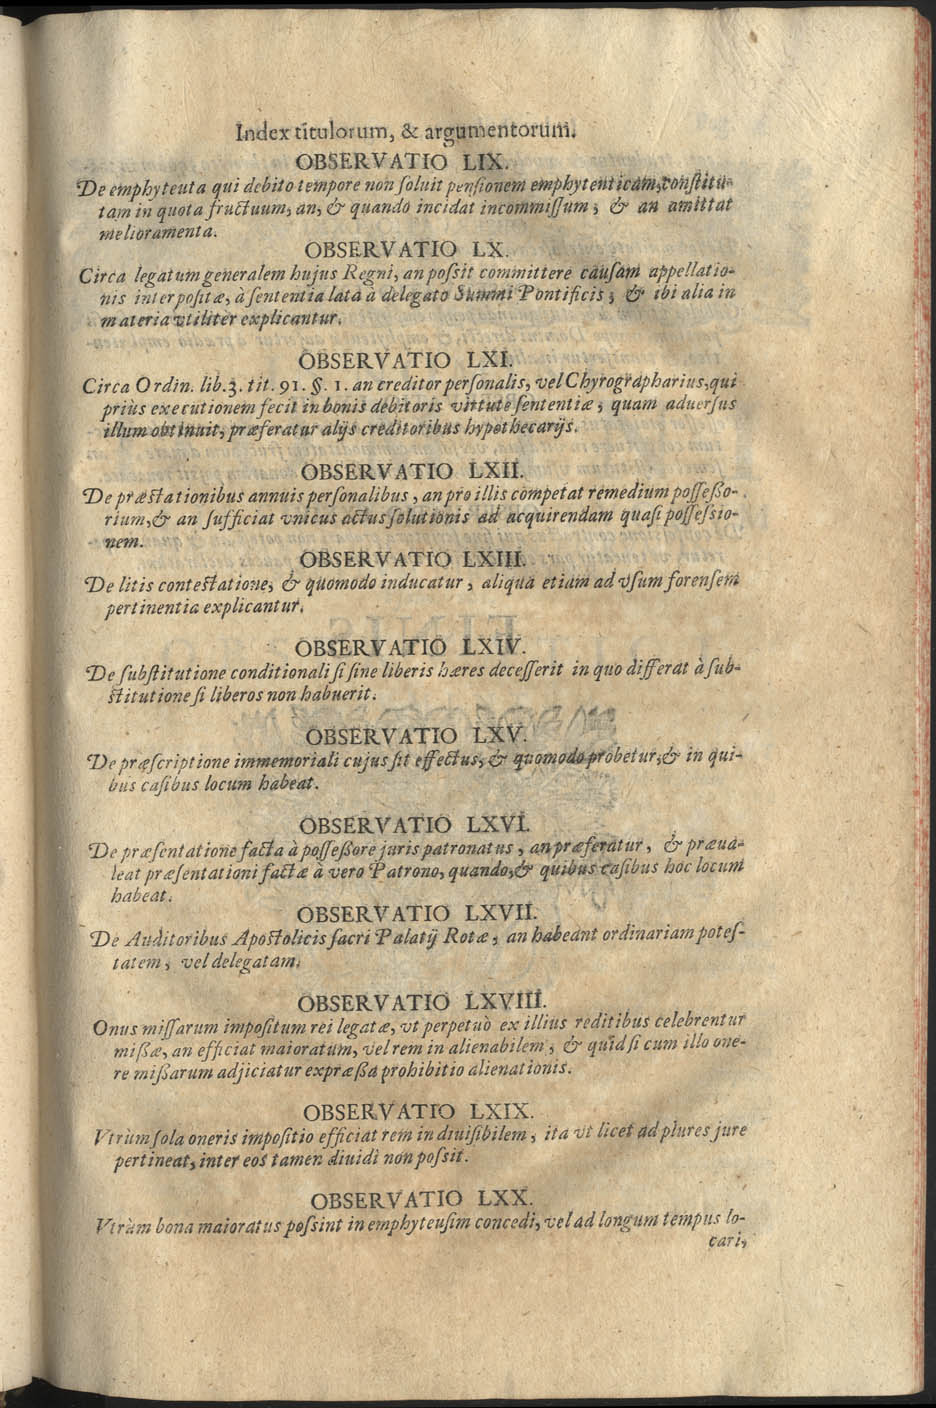 Index titulorum, & argumentorum.
OBSERVATIO LIX.
De emphyteuta qui debito tempore non ſoluit penſionem emphyteuticam, conſtitu-
tam in quota fructuum, an, & quando incidat incommiſſum; & an amittat
melioramenta.
OBSERVATIO LX.
Circa legatum generalem hujus Regni, an poſsit committere cauſam appellatio-
nis interpoſitæ, à ſententia lata à delegato Summi Pontificis; & ibi alia in
materia vtiliter explicantur.
OBSERVATIO LXI.
Circa Ordin. lib. 3. tit. 91. §. 1. an creditor perſonalis, vel Chyrographarius, qui
priùs executionem fecit in bonis debitoris virtute ſententiæ, quam aduerſus
illum obtinuit, præferatur alijs creditoribus hypothecarijs.
OBSERVATIO LXII.
De præſtationibus annuis perſonalibus, an pro illis competat remedium poſſeßo-
rium, & an ſufficiat vnicus actus ſolutionis ad acquirendam quaſi poſſeſsio-
nem.
OBSERVATIO LXIII.
De litis conteſtatione, & quomodo inducatur, aliqua etiam ad vſum forenſem
pertinentia explicantur.
OBSERVATIO LXIV.
De ſubſtitutione conditionali ſi ſine liberis hæres deceſſerit in quo differat à ſub-
ſtitutione ſi liberos non habuerit.
OBSERVATIO LXV.
De præſcriptione immemoriali cujus ſit effectus, & quomodo probetur, & in qui-
bus caſibus locum habeat.
OBSERVATIO LXVI.
De præſentatione facta à poſſeßore juris patronatus, an præferatur, & præua-
leat præſentationi factæ à vero Patrono, quando, & quibus caſibus hoc locum
habeat.
OBSERVATIO LXVII.
De Auditoribus Apoſtolicis ſacri Palatij Rotæ, an habeant ordinariam poteſ-
tatem, vel delegatam.
OBSERVATIO LXVIII.
Onus miſſarum impoſitum rei legatæ, vt perpetuò ex illius reditibus celebrentur
mißæ, an efficiat maioratum, vel rem in alienabilem, & quid ſi cum illo one-
re mißarum adjiciatur expræßa prohibitio alienationis.
OBSERVATIO LXIX.
Vtrùm ſola oneris impoſitio efficiat rem indiuiſibilem, ita vt licet ad plures jure
pertineat, inter eos tamen diuidi non poſsit.
OBSERVATIO LXX.
Vtrùm bona maioratus poſsint in emphyteuſim concedi, vel ad longum tempus lo-
cari,